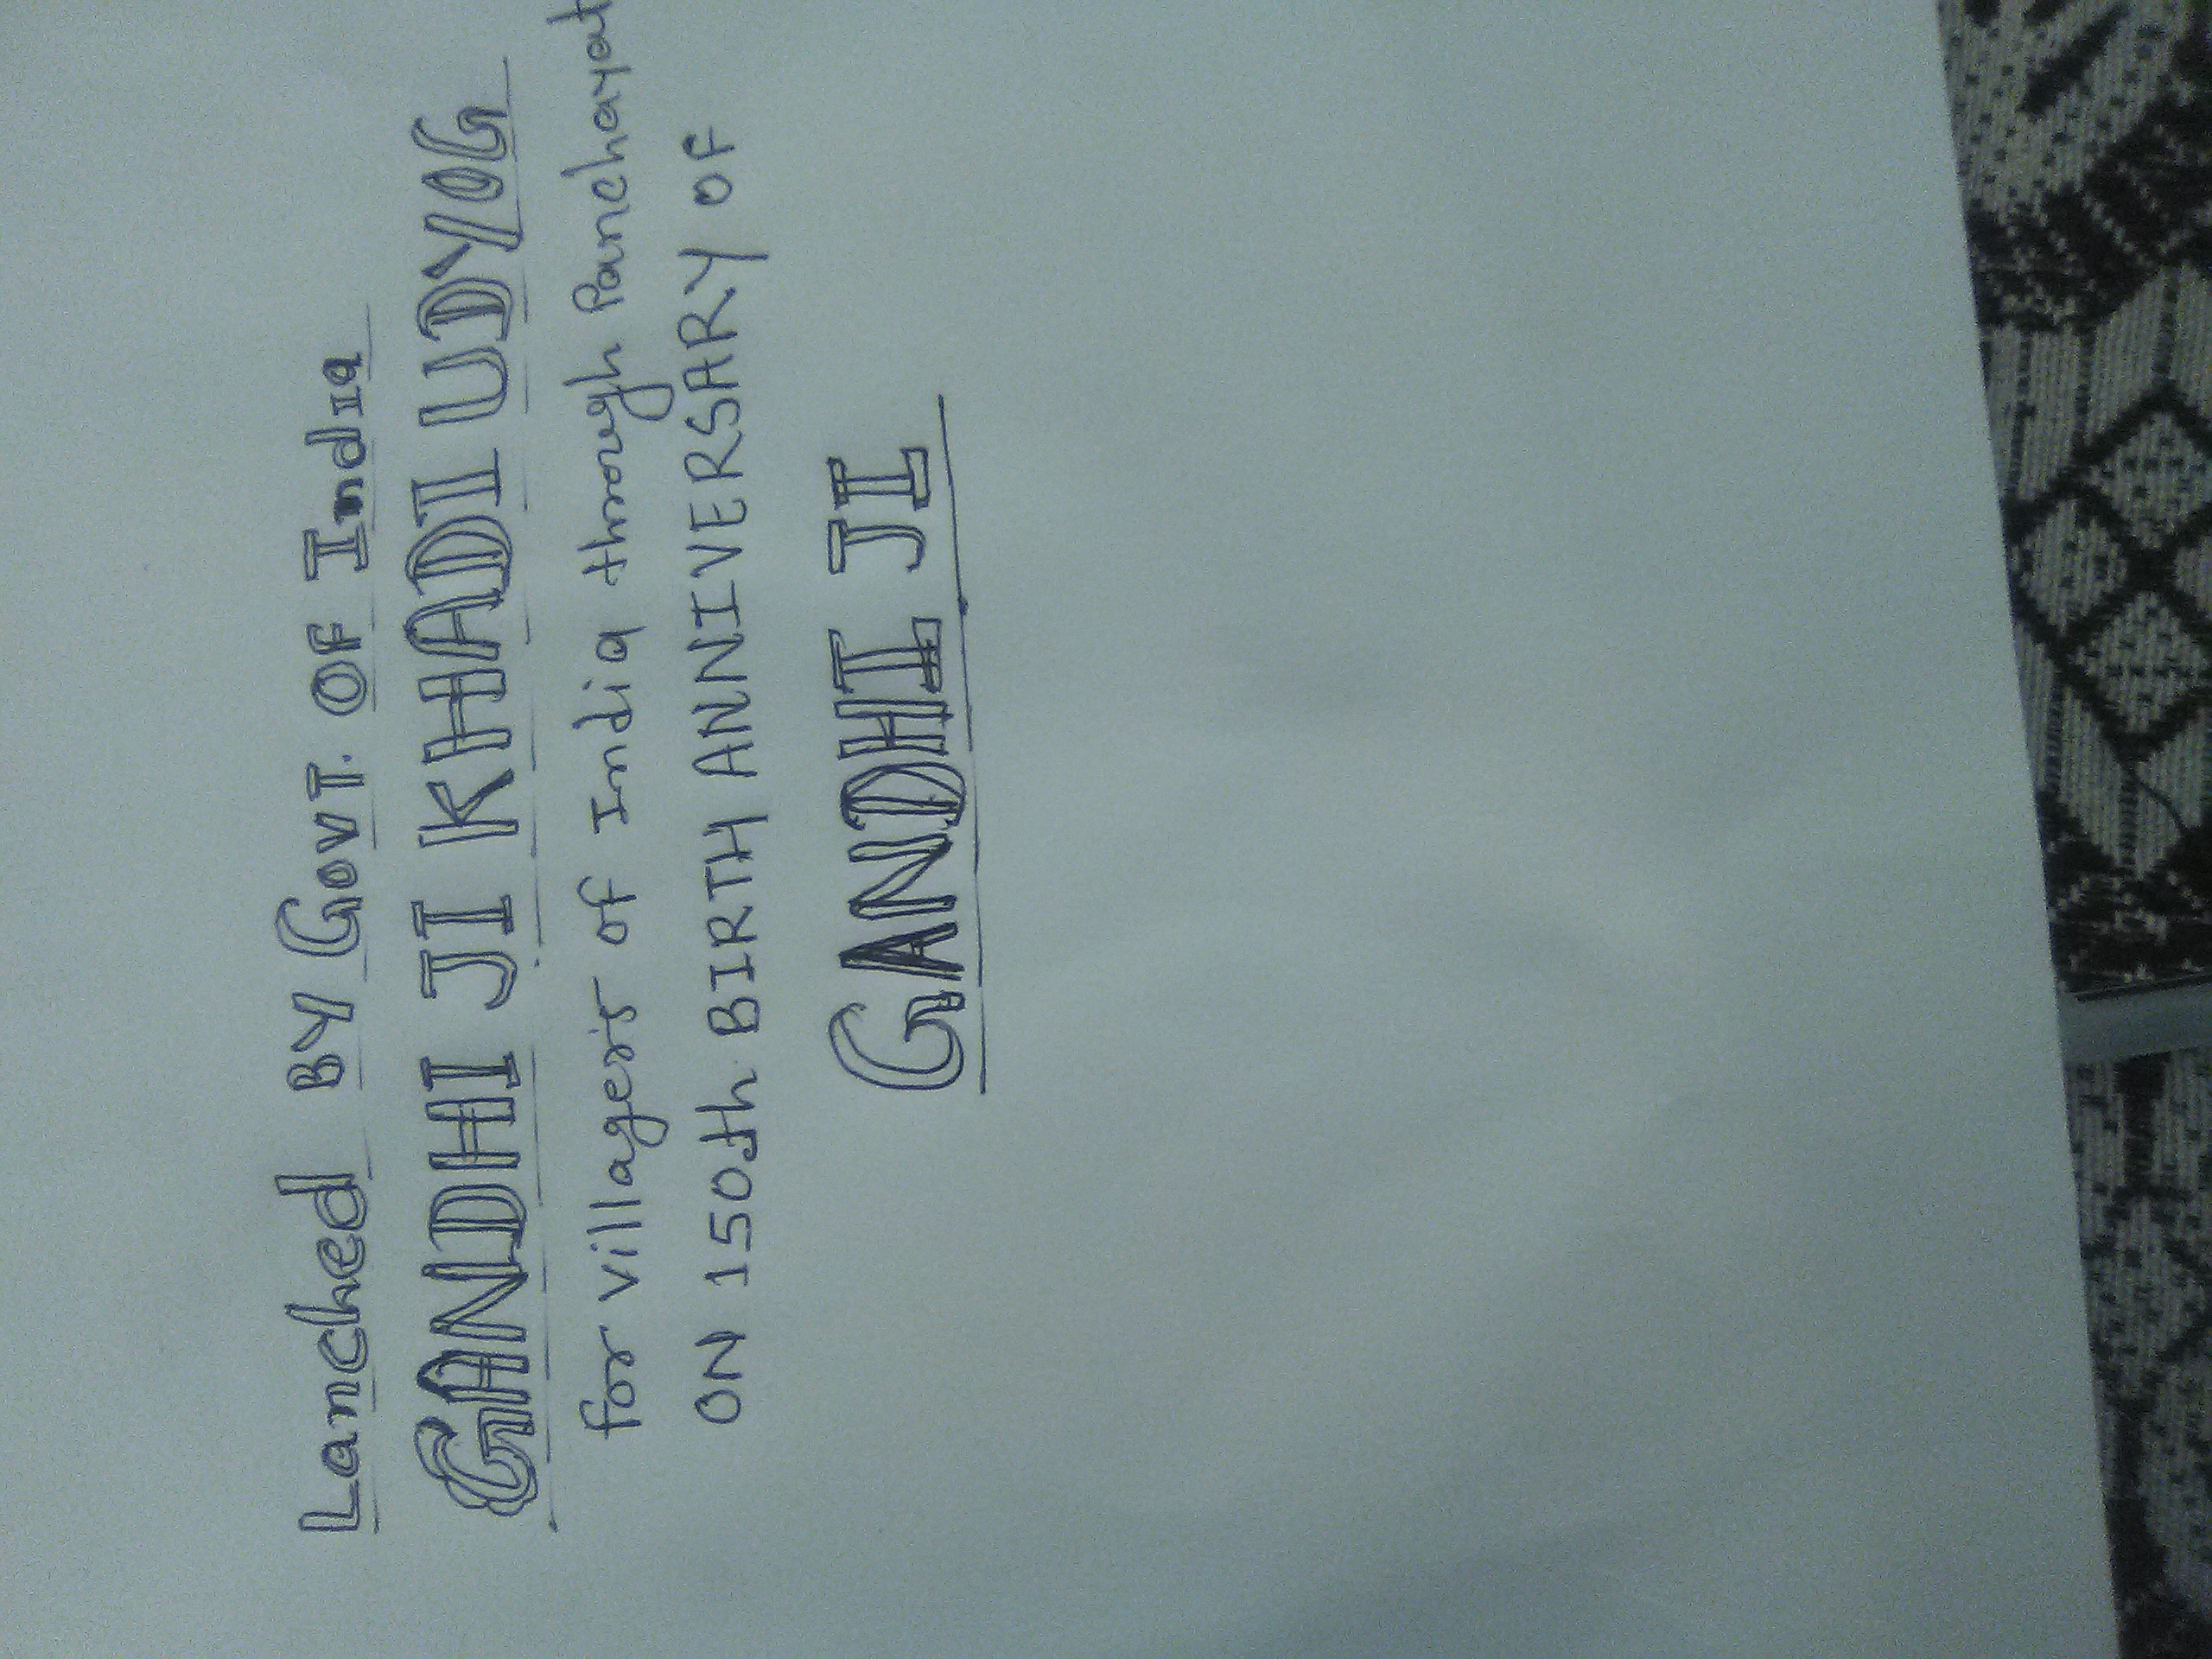 Lanched BY Govt. OF India
GANDHI JI KHADI UDYOG
for villager's of India through Panchayat
ON 150th BIRTH ANNIVERSARY OF
GANDHI JI